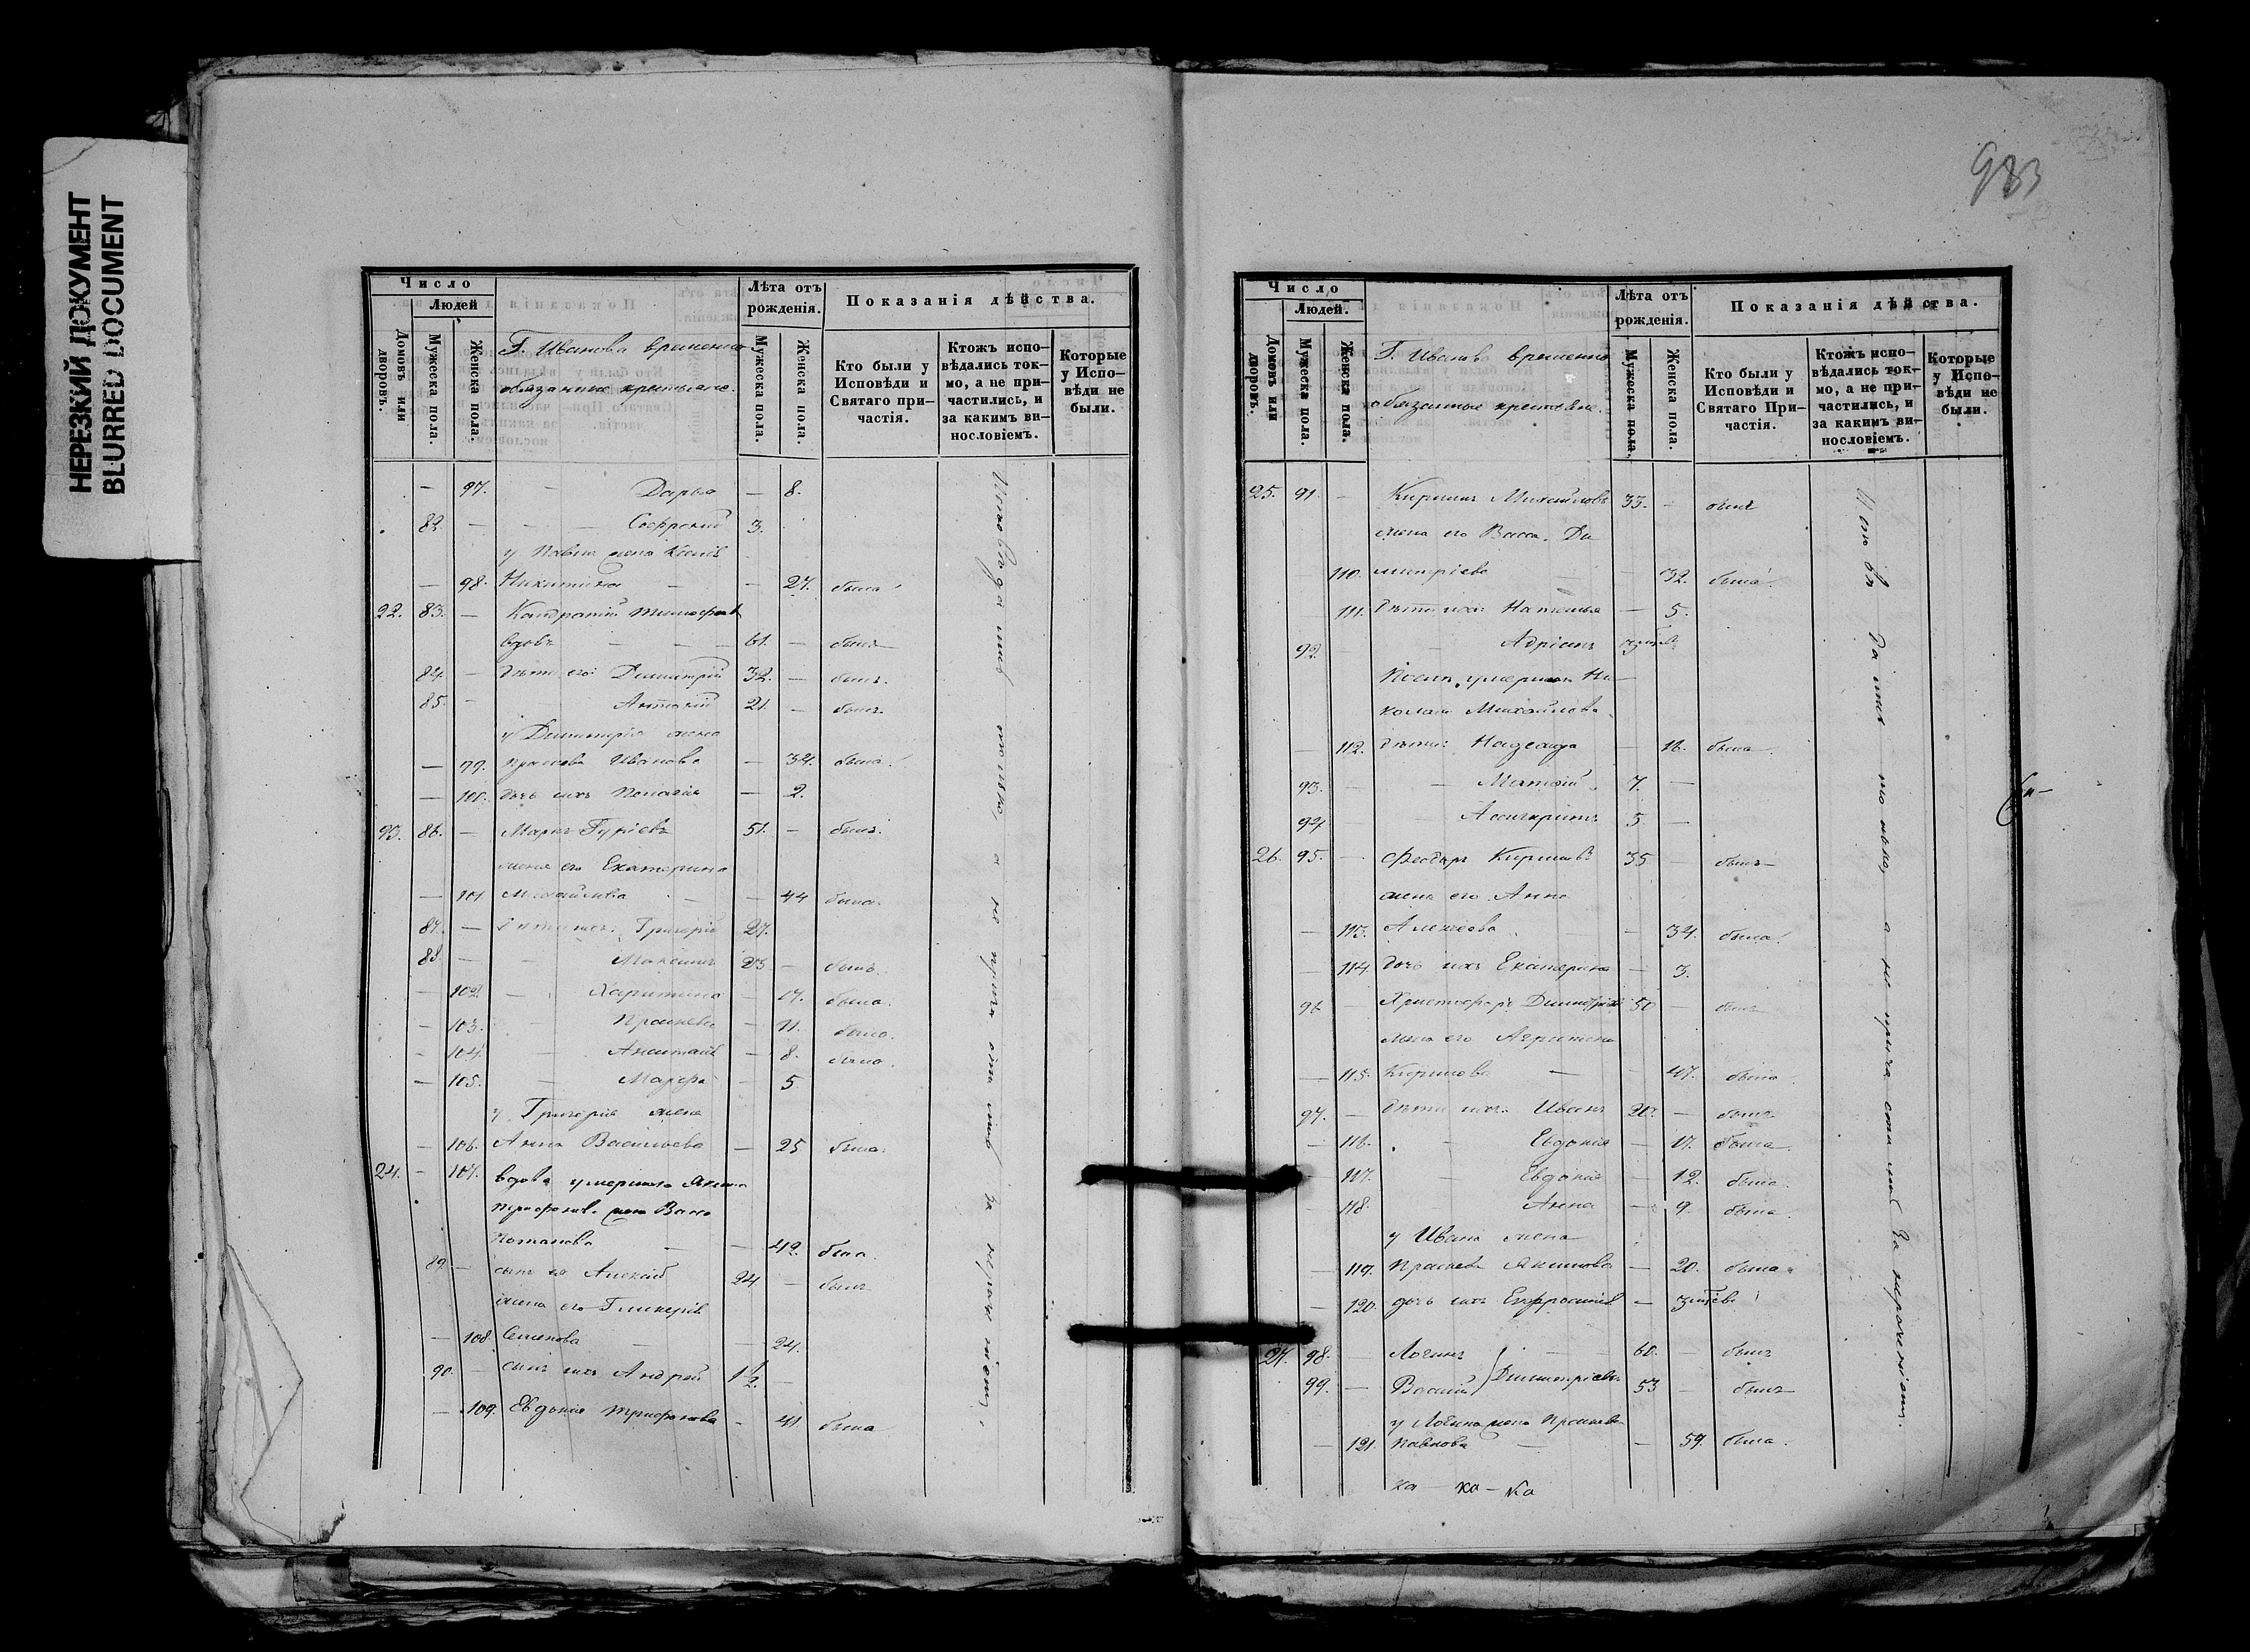 НЕРЕЗКИЙ ДОКУМЕНТ
BLURRED DOCUMENT
Число
Людей
Домовъ или дворовъ.
Мужеска пола.
Женска пола.
Г. Иванова временно
обязанные крестьяне.
Лѣта отъ рожденія.
Мужеска пола.
Женска пола.
Показанія дѣйства.
Кто были у Исповѣди и Святаго при-частія.
Ктожъ испо-вѣдались ток-мо, а не при-частились, и за какимъ ви-нословіемъ.
Которые у Испо-вѣди не были.
— 97. — Дарья — 8.
82 — — 3.
у Павла жена
— 98. Никитина — — 27. была
22. 83. — Кондратій
вдовъ — — — 61. — былъ
84. — дѣти его: Димитрій 32. — былъ.
85. — 21. — былъ.
у Димитрія жена
— 99. Ивановa — 34. была.
— 100. дочь ихъ Пелагія — 2.
23. 86. — Маркъ Гуріевъ 51. — былъ.
жена его Екатерина
— 101 Михайлова — — 44 была.
87. — дѣти ихъ: Григорій 27.
88 — Максимъ 23 — былъ.
— 102. — Харитина — 17. была.
— 103. — — 11. была.
— 104. — — 8. была.
— 105. — Марфа — 5
у Григорія жена
— 106. Анна Васильева — 25 была.
24. — 107. вдова умершаго
Васса
Потапова — — 42. была.
89 — сынъ ея Алексій 24 — былъ
жена его Гликерія
— 108. Семенова — — 24.
90. — сынъ ихъ Андрей 1½. —
— 109. Евдокія Трифонова — 41. была
Исповѣдались только, а не причастились за нерачениемъ.
933
Число
Людей.
Домовъ или дворовъ.
Мужеска пола.
Женска пола.
Г. Иванова временно
обязанные крестьяне.
Лѣта отъ рожденія.
Мужеска пола.
Женска пола.
Показанія дѣйства.
Кто были у Исповѣди и Святаго При-частія.
Ктожъ испо-вѣдались ток-мо, а не при-частились, и за какимъ ви-нословіемъ.
Которые у Испо-вѣди не были.
25. 91. — Кириллъ Михайловъ 33. — былъ
жена его Васса Ди
110. митріева — — 32. была.
111. дѣти ихъ: Наталья — 5.
92. — — Адріанъ
умершаго Ни—
колая Михайлова
— 112. дѣти: Надежда — 16. была
93. — 7. —
94 — Асигкритъ 5 —
26. 95. — Феодоръ Кириловъ 35 — былъ
жена его Анна
— 113. Алексѣева — 34. была.
— 114. дочь ихъ Екатерина — 3.
96 — Христофоръ Димитріевъ 50 — былъ
жена его Агрипина
— 115. Кирилова — — 47. была.
97. — дѣти ихъ: Иванъ 20. — былъ
— 116. — Евдокія — 17. была
— 117. — Евдокія — 12. была.
— 118. — Анна — 9. была.
у Ивана жена
— 119. Акимова — 20. была
— 120. дочь ихъ Евфросинія —
27. 98. — Логинъ — — 60. — былъ
99. — Димитріевы 53 — былъ
у Логина жена
— 121. Павлова — — 59. была.
ка — ка — ка
Исповѣдались только, а не причастились за нерачениемъ.